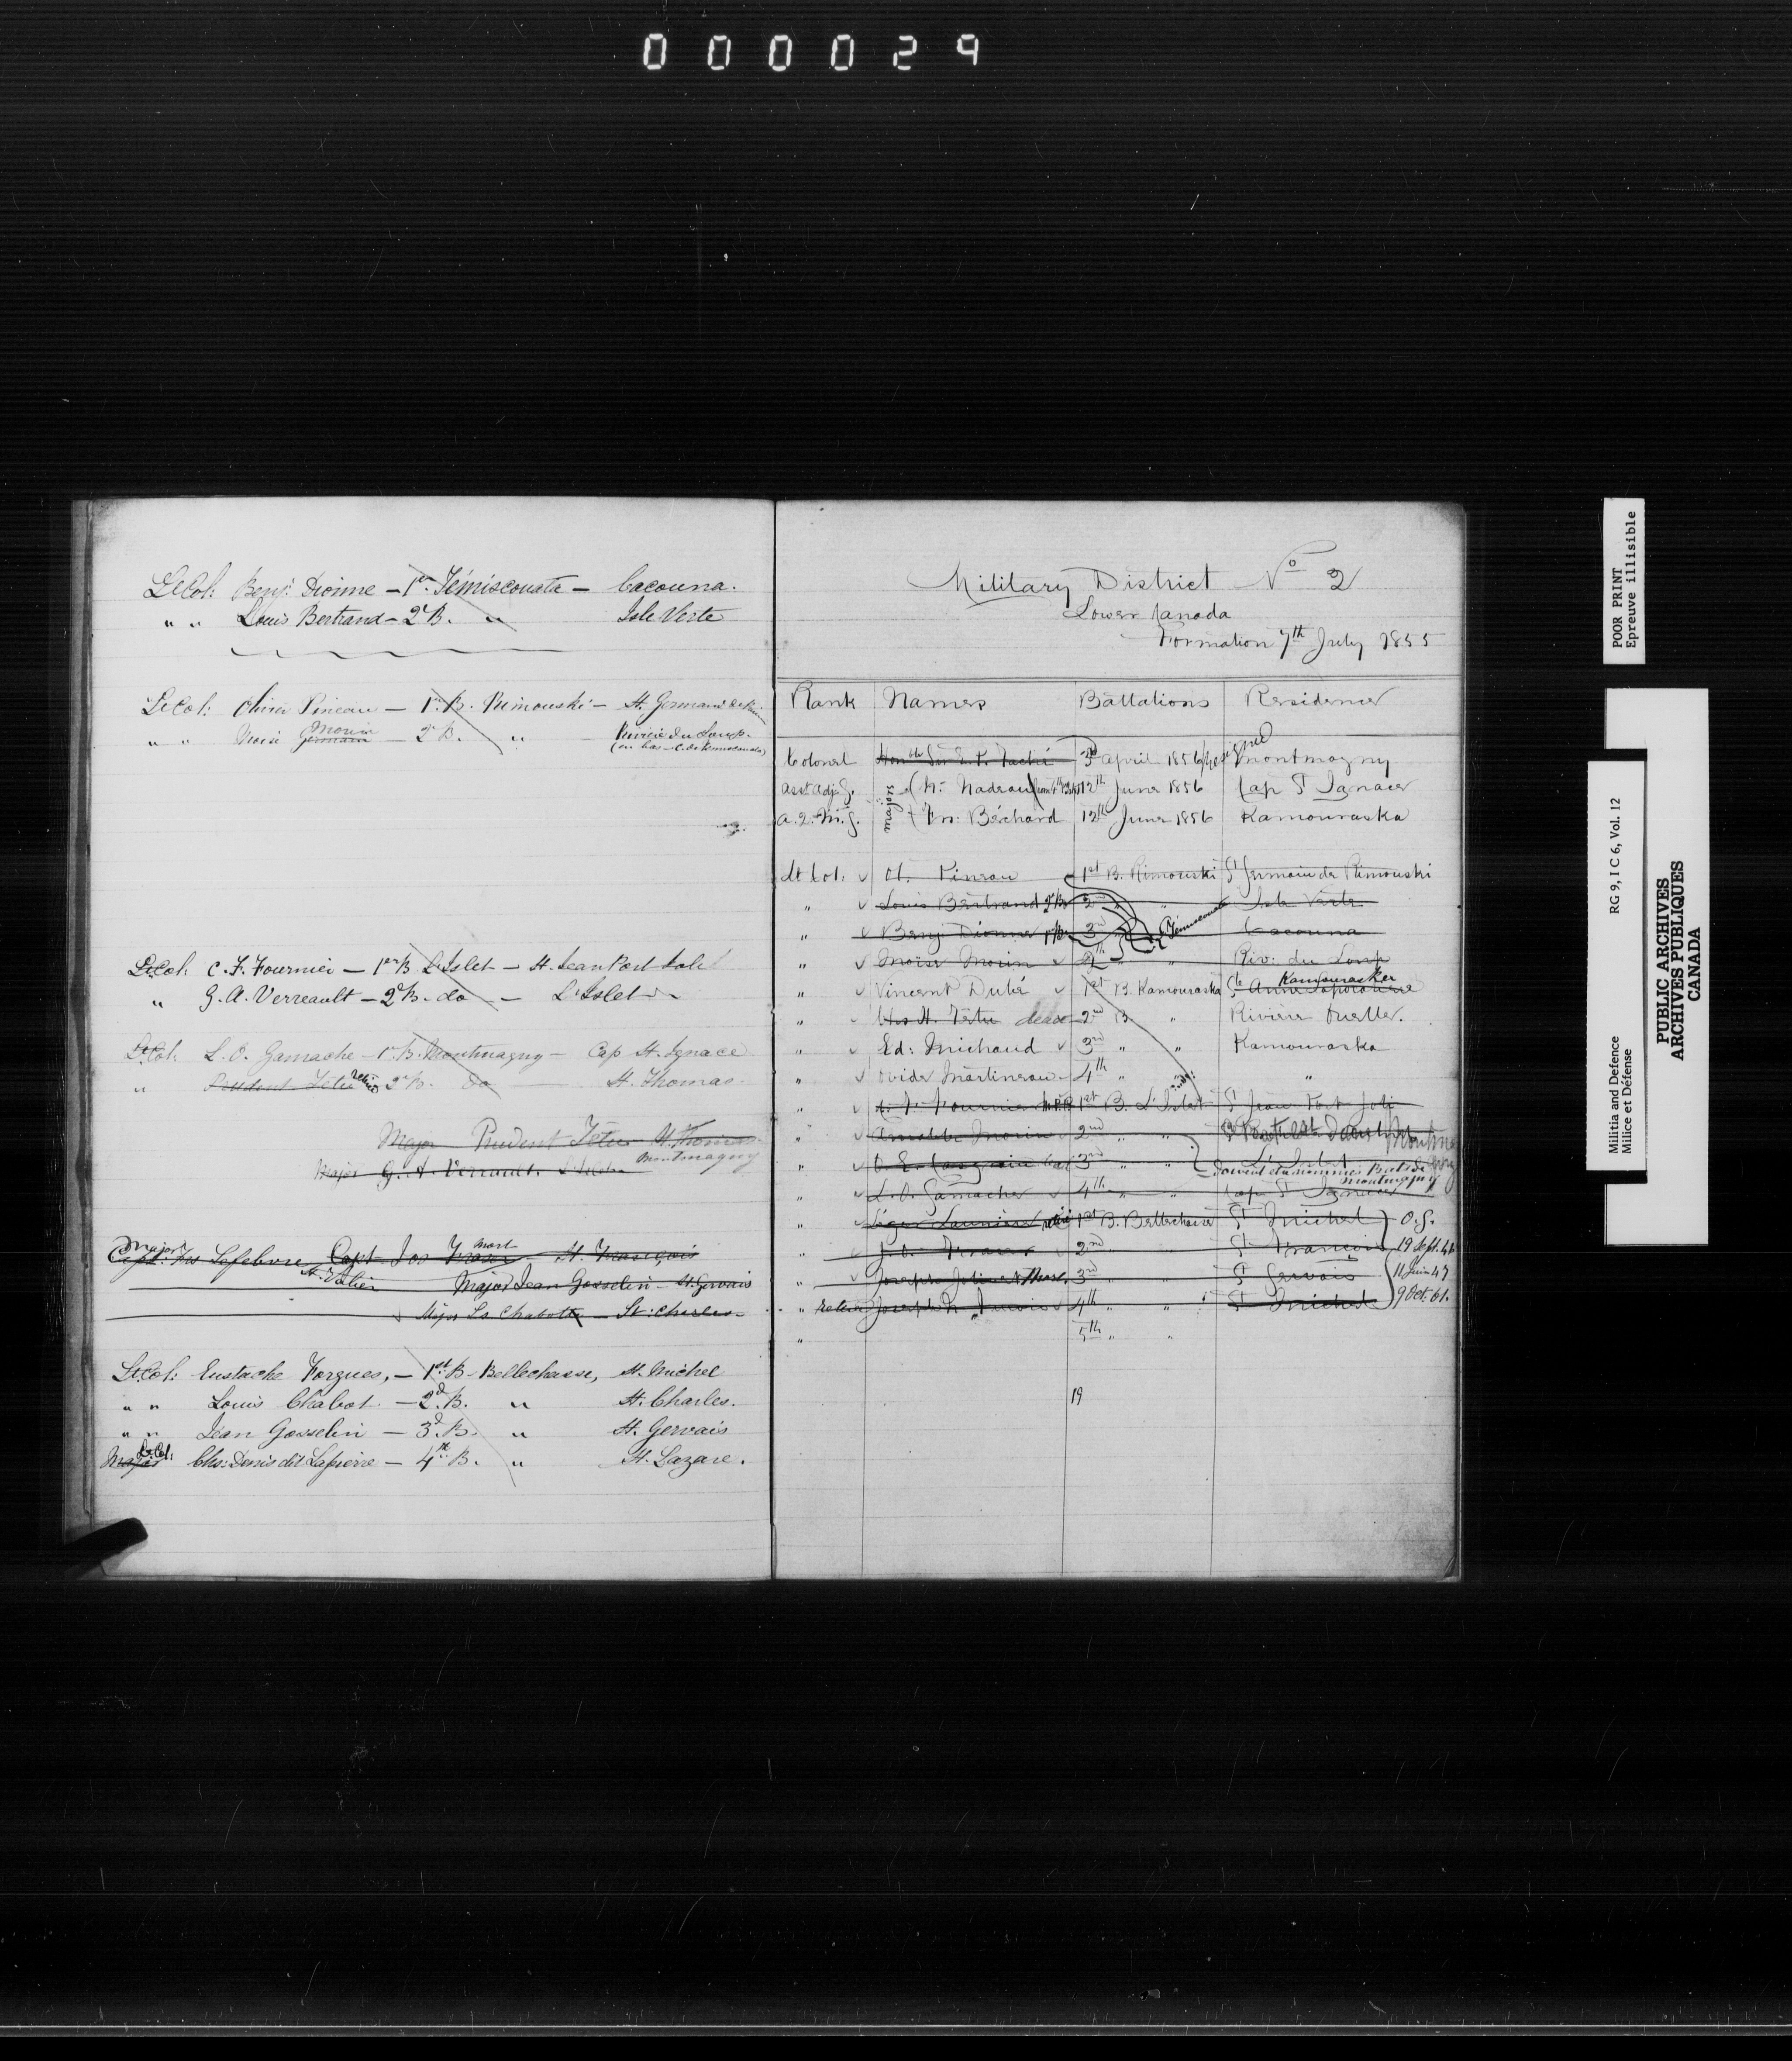 000029
Lt Col: Benj: Dionne – 1er Témiscouata – Cacouna.
" " Louis Bertrand – 2d B. " Isle Verte
Lt Col: Olivier Pineau – 1er B. Rimouski – St. Germain de Rim
" " Moïse Germain Morin – 2d B. " Rivière du Loup
(en bas – C. de Témiscouata)
Lt Col: C. F. Fournier – 1er B. L'Islet – St. Jean Port Joli
" G. A. Verreault – 2d B. do – L'Islet
Lt Col: L. O. Gamache – 1r B. Montmagny – Cap St. Ignace
" Prudent Têtu 2d B. do St. Thomas
Major Prudent Têtu St. Thomas
Montmagny
Major G. A. Verreault
Major
Capt: Frs Lefebvre Capt Jos Fraser mort St. François
St. Valier Major Jean Gosselin – St. Gervais
Major Ls. Chabot – St: Charles
Lt Col: Eustache Forgues, – 1st B. Bellechasse, St. Michel
" " Louis Chabot – 2d B. " St. Charles.
" " Jean Gosselin – 3d B. " St. Gervais
Major Lt Col: Chs: Denis dit Lapierre – 4th B. " St. Lazare.
Military District No 2
Lower Canada
Formation 7th July 1855
Rank Names Battalions Residence
Colonel Honble Sir E. P. Taché 3d April 1856 resigned Montmagny
Asst Adj. G. Majors N. Nadeau 12th June 1856 Cap St Ignace
A. Q. M. G. Frs: Béchard 12th June 1856 Kamouraska
Lt Col: Ol. Pineau 1st B. Rimouski St Germain de Rimouski
" Louis Bertrand 2d B. 2nd " " Isle Verte
" Benj: Dionne 1r B. 3rd " Témiscouata Cacouna
" Moïse Morin 4th " " Riv: du Loup
" Vincent Dubé 1st B. Kamouraska Ste Anne Lapocatière Kamouraska
" Chs H. Têtu dead 2nd B. " Rivière Ouelle.
" Ed: Michaud 3rd " " Kamouraska
" Ovide Martineau 4th " " "
" C. F. Fournier M.P.P. 1st B. L'Islet St Jean Port Joli
" Morin 2nd " "
" O. E. Casgrain 3rd " " L'Islet
doivent être nommés Bats de Montmagny
" L. O. Gamache 4th " " Cap St Ignace
" Léger Launière 1st B. Bellechasse St Michel O. G.
" Fraser 2nd " St François 19 Sept.
" Joseph 3rd " " St Gervais 11 Juin 47
" retired Joseph 4th " " St Michel 9 Oct. 61.
" 5th " "
19
POOR PRINT
Epreuve illisible
Militia and Defence RG 9, I C 6, Vol. 12
Milice et Défense
PUBLIC ARCHIVES
ARCHIVES PUBLIQUES
CANADA